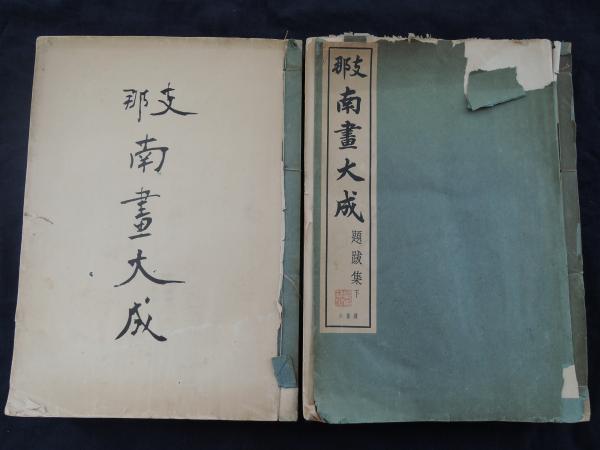 支那
南畫大成
支那
南畫大成
題跋集下